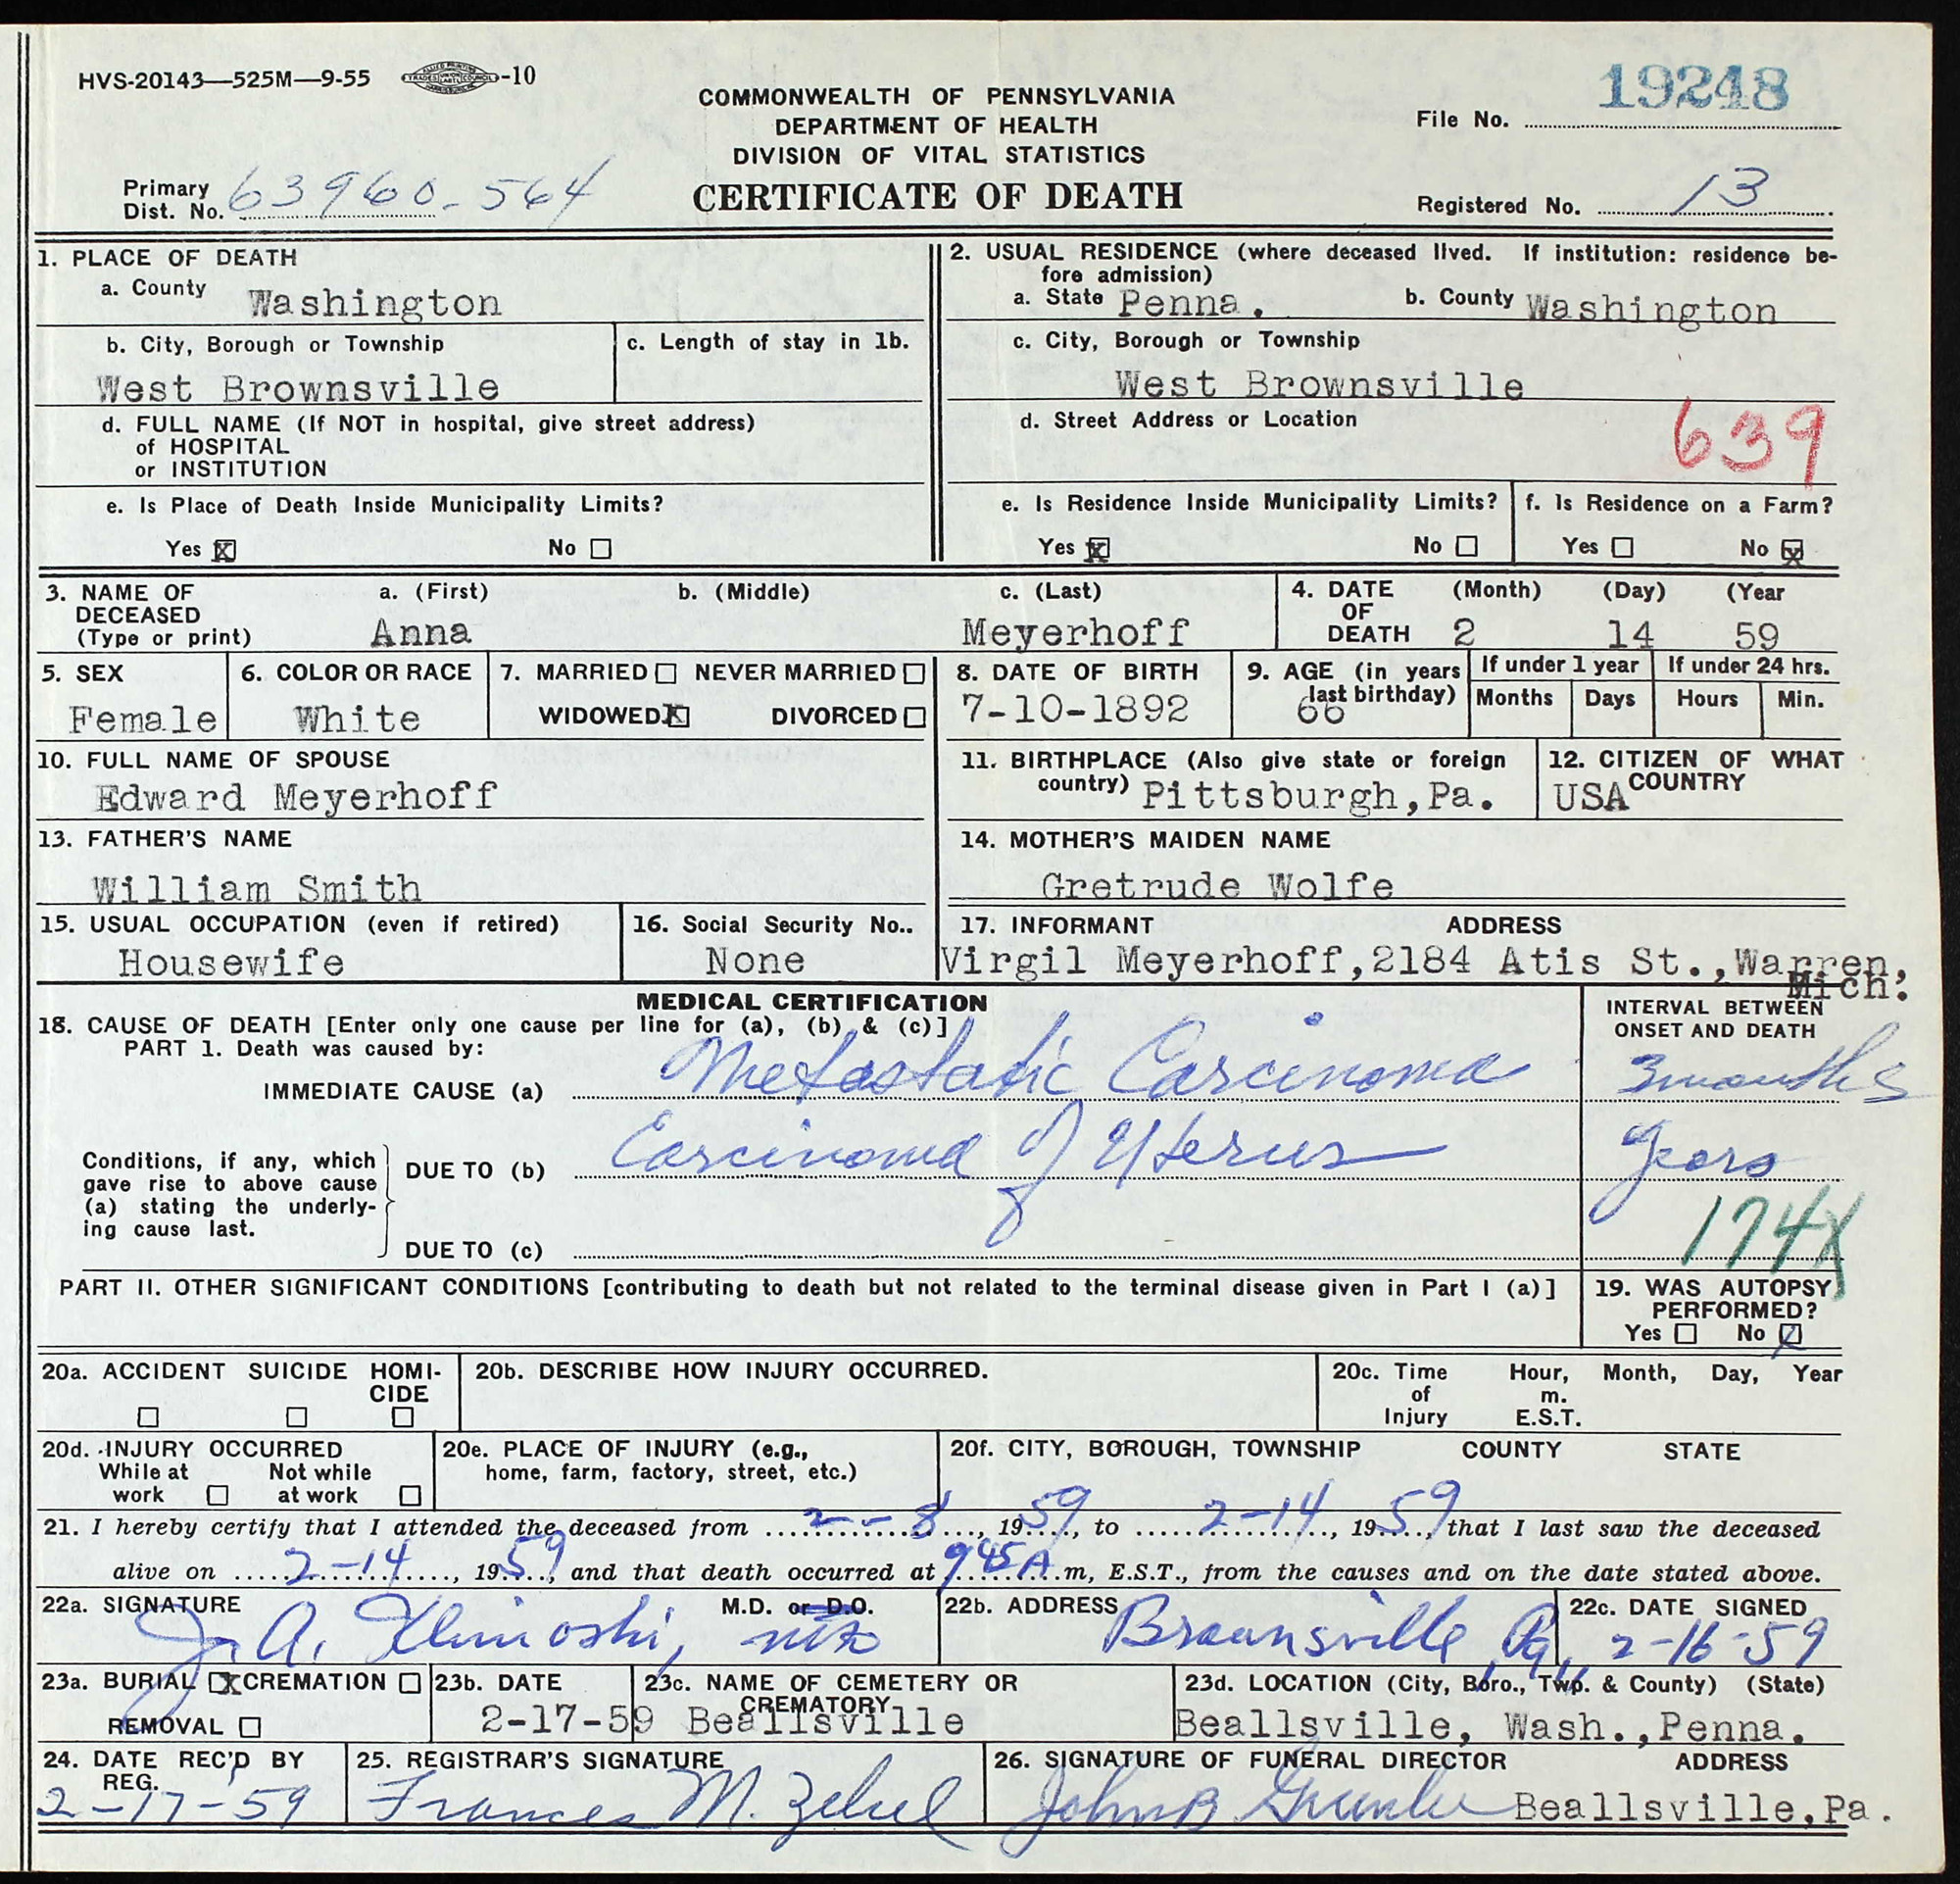 HVS-20143—525M—9-55 -10
19248
COMMONWEALTH OF PENNSYLVANIA
DEPARTMENT OF HEALTH
DIVISION OF VITAL STATISTICS
CERTIFICATE OF DEATH
File No.
Primary Dist. No. 63960-564
Registered No. 13
1. PLACE OF DEATH
a. County Washington
b. City, Borough or Township
West Brownsville
c. Length of stay in 1b.
d. FULL NAME (If NOT in hospital, give street address)
of HOSPITAL
or INSTITUTION
e. Is Place of Death Inside Municipality Limits?
Yes X No
2. USUAL RESIDENCE (where deceased lived. If institution: residence be-
fore admission)
a. State Penna. b. County Washington
c. City, Borough or Township
West Brownsville
d. Street Address or Location
639
e. Is Residence Inside Municipality Limits?
Yes X No
f. Is Residence on a Farm?
Yes No X
3. NAME OF DECEASED (Type or print)
a. (First) b. (Middle) c. (Last)
Anna Meyerhoff
4. DATE OF DEATH (Month) (Day) (Year
2 14 59
5. SEX
Female
6. COLOR OR RACE
White
7. MARRIED NEVER MARRIED
WIDOWED X DIVORCED
8. DATE OF BIRTH
7-10-1892
9. AGE (in years last birthday)
66
If under 1 year
Months Days
If under 24 hrs.
Hours Min.
10. FULL NAME OF SPOUSE
Edward Meyerhoff
11. BIRTHPLACE (Also give state or foreign
country) Pittsburgh,Pa.
12. CITIZEN OF WHAT
COUNTRY
USA
13. FATHER'S NAME
William Smith
14. MOTHER'S MAIDEN NAME
Gretrude Wolfe
15. USUAL OCCUPATION (even if retired)
Housewife
16. Social Security No..
None
17. INFORMANT ADDRESS
Virgil Meyerhoff,2184 Atis St.,Warren,
Mich.
MEDICAL CERTIFICATION
18. CAUSE OF DEATH [Enter only one cause per line for (a), (b) & (c)]
PART 1. Death was caused by:
INTERVAL BETWEEN
ONSET AND DEATH
IMMEDIATE CAUSE (a) Metastatic Carcinoma 3 months
Conditions, if any, which
gave rise to above cause
(a) stating the underly-
ing cause last.
DUE TO (b) Carcinoma of Uterus Years
174X
DUE TO (c)
PART II. OTHER SIGNIFICANT CONDITIONS [contributing to death but not related to the terminal disease given in Part I (a)]
19. WAS AUTOPSY
PERFORMED?
Yes No X
20a. ACCIDENT SUICIDE HOMI-
CIDE
20b. DESCRIBE HOW INJURY OCCURRED.
20c. Time of Injury
Hour, Month, Day, Year
m.
E.S.T.
20d. INJURY OCCURRED
While at work Not while at work
20e. PLACE OF INJURY (e.g.,
home, farm, factory, street, etc.)
20f. CITY, BOROUGH, TOWNSHIP COUNTY STATE
21. I hereby certify that I attended the deceased from 2-8, 1959, to 2-14, 1959, that I last saw the deceased
alive on 2-14, 1959, and that death occurred at 945A m, E.S.T., from the causes and on the date stated above.
22a. SIGNATURE M.D. or D.O.
J. A.
22b. ADDRESS
Brownsville Pa
22c. DATE SIGNED
2-16-59
23a. BURIAL X CREMATION
REMOVAL
23b. DATE
2-17-59
23c. NAME OF CEMETERY OR
CREMATORY
Beallsville
23d. LOCATION (City, Boro., Twp. & County) (State)
Beallsville, Wash.,Penna.
24. DATE REC'D BY
REG.
2-17-59
25. REGISTRAR'S SIGNATURE
Frances M.
26. SIGNATURE OF FUNERAL DIRECTOR ADDRESS
John B Beallsville,Pa.